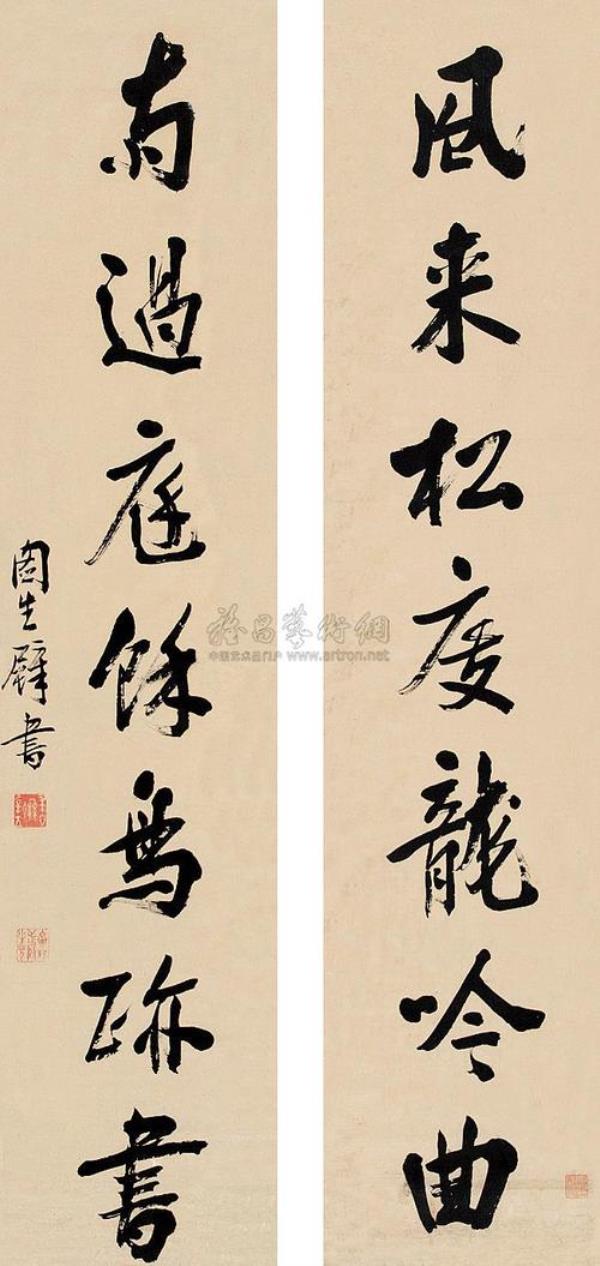 風来松度龍吟曲
雨過庭餘鳥跡書
生 書
雅昌藝術網
中国艺术品门户 www.artron.net